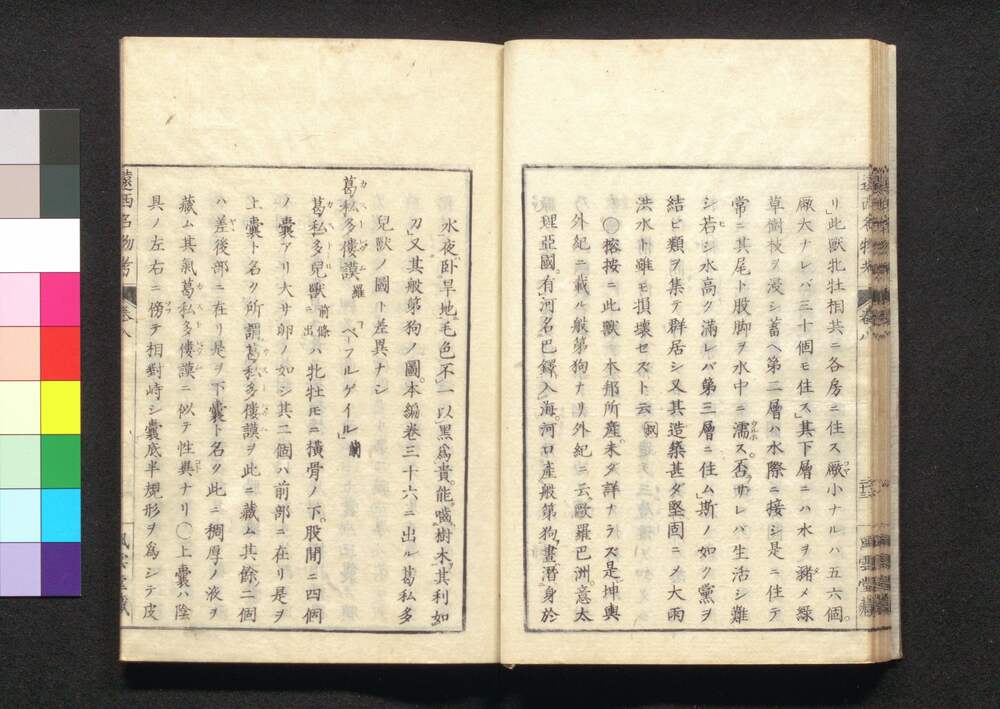 リ」此獣牝牡相共ニ各房ニ住ス廠小ナルハ五六個。
廠大ナレバ三十個モ住ス」其下層ニハ水ヲ豬メ緑
草樹枝ヲ浸シ蓄ヘ第二層ハ水際ニ接シ是ニ住テ
常ニ其尾ト股脚ヲ水中ニ濡ス。否サレバ生活シ難
シ若シ水高ク滿レバ第三層ニ住ム」斯ノ如ク黨ヲ
結ビ類ヲ集テ群居シ又其造築甚ダ堅固ニメ大雨
洪水ト雖モ損壊セズト云
◯榕按ニ此獣ノ本邦所産未タ詳ナラズ是坤輿
外紀ニ載ル般第狗ナリ外紀ニ云歐羅巴洲。意太
理亞國。有河名巴鐸入海。河口産般第狗。晝潛身於
水夜卧旱地。毛色不一以黒爲貴。能嚙樹木。其利如
刀又其般第狗ノ圖。本編巻三十六ニ出ル葛私多
兒獣ノ圖ト差異ナシ
葛私多僂謨 羅 ベーフルゲイル 蘭
葛私多兒獣 前條ニ出 ハ牝牡モニ横骨ノ下。股間ニ四個
ノ囊アリ大サ卵ノ如シ其二個ハ前部ニ在リ是ヲ
上囊ト名ク所謂葛私多僂謨ヲ此ニ藏ム其餘二個
ハ差後部ニ在リ是ヲ下囊ト名ク此ニ稠厚ノ液ヲ
藏ム其氣葛私多僂謨ニ似テ性異ナリ◯上囊ハ陰
具ノ左右ニ傍テ相對峙シ囊底半規形ヲ爲シテ皮
遠西名物考 巻八
風雲堂藏